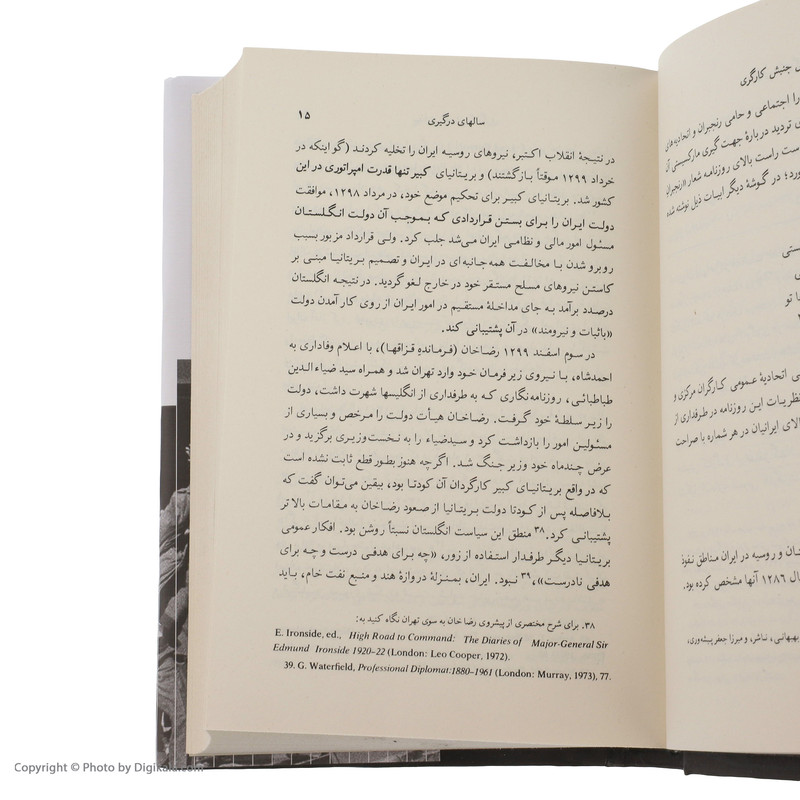 سالهای درگیری
۱۵
در نتیجهٔ انقلاب اکتبر، نیروهای روسیه ایران را تخلیه کردند (گو اینکه در
خرداد ۱۲۹۹ موقتاً بازگشتند) و بریتانیای کبیر تنها قدرت امپراتوری در این
کشور شد. بریتانیای کبیر برای تحکیم موضع خود، در مرداد ۱۲۹۸، موافقت
دولت ایران را برای بستن قراردادی که بموجب آن دولت انگلستان
مسئول امور مالی و نظامی ایران می‌شد جلب کرد. ولی قرارداد مزبور بسبب
روبرو شدن با مخالفت همه جانبه‌ای در ایران و تصمیم بریتانیا مبنی بر
کاستن نیروهای مسلح مستقر خود در خارج لغو گردید. در نتیجه انگلستان
درصدد برآمد به جای مداخلهٔ مستقیم در امور ایران از روی کار آمدن دولت
«باثبات و نیرومند» در آن پشتیبانی کند.
در سوم اسفند ۱۲۹۹ رضاخان (فرمانده قزاقها)، با اعلام وفاداری به
احمدشاه، با نیروی زیر فرمان خود وارد تهران شد و همراه سید ضیاءالدین
طباطبائی، روزنامه‌نگاری که به طرفداری از انگلیسها شهرت داشت، دولت
را زیر سلطهٔ خود گرفت. رضاخان هیأت دولت را مرخص و بسیاری از
مسئولین امور را بازداشت کرد و سیدضیاء را به نخست‌وزیری برگزید و در
عرض چندماه خود وزیر جنگ شد. اگرچه هنوز بطور قطع ثابت نشده است
که در واقع بریتانیای کبیر کارگردان آن کودتا بود، بیقین می‌توان گفت که
بلافاصله پس از کودتا دولت بریتانیا از صعود رضاخان به مقامات بالاتر
پشتیبانی کرد.۳۸ منطق این سیاست انگلستان نسبتاً روشن بود. افکار عمومی
بریتانیا دیگر طرفدار استفاده از زور، «چه برای هدفی درست و چه برای
هدفی نادرست»،۳۹ نبود. ایران، بمنزلهٔ دروازهٔ هند و منبع نفت خام، باید
۳۸. برای شرح مختصری از پیشروی رضاخان به سوی تهران نگاه کنید به:
E. Ironside, ed., High Road to Command: The Diaries of Major-General Sir
Edmund Ironside 1920–22 (London: Leo Cooper, 1972).
39. G. Waterfield, Professional Diplomat:1880–1961 (London: Murray, 1973), 77.
جنبش کارگری
را اجتماعی و حامی رنجبران و اتحادیه‌های
تردید دربارهٔ جهت گیری مارکسیستی آن
ست راست بالای روزنامه شعار «رنجبران
ورد؛ در گوشهٔ دیگر ابیات ذیل نوشته شده
تو
اتحادیهٔ عمومی کارگران مرکزی و
نظریات این روزنامه در طرفداری از
لای ایرانیان در هر شماره با صراحت
ان و روسیه در ایران مناطق نفوذ
ال ۱۲۸۶ آنها مشخص کرده بود.
بهبهانی، ناشر، و میرزا جعفر پیشه‌وری،
Copyright © Photo by Digikala.com